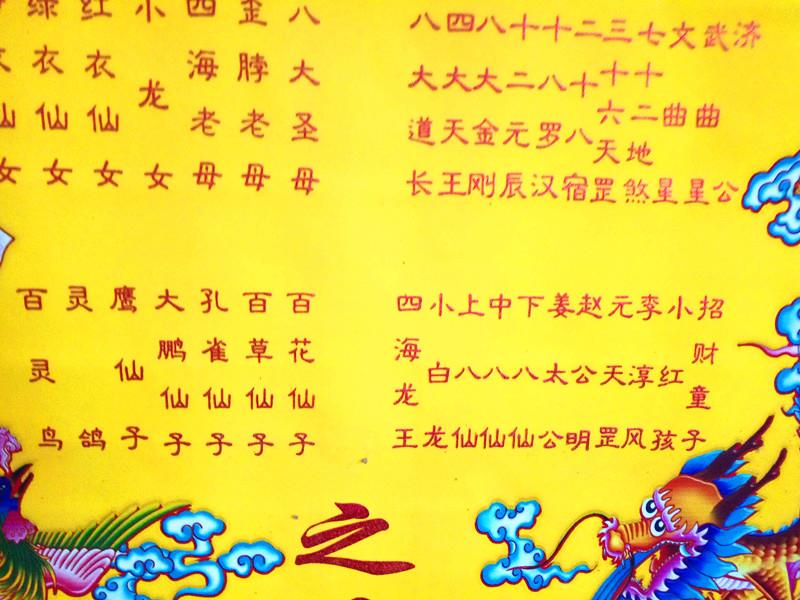 济公
武曲星
文曲星
七十二地煞
三十六天罡
二十八宿
十八罗汉
十二元辰
八大金刚
四大天王
八大道长
八大圣母
歪脖老母
四海老母
小龙女
红衣仙女
绿衣仙女
衣仙女
招财童子
小红孩
李淳风
元天罡
赵公明
姜太公
下八仙
中八仙
上八仙
小白龙
四海龙王
百花仙子
百草仙子
孔雀仙子
大鹏仙子
鹰仙子
灵鸽
百灵鸟
之